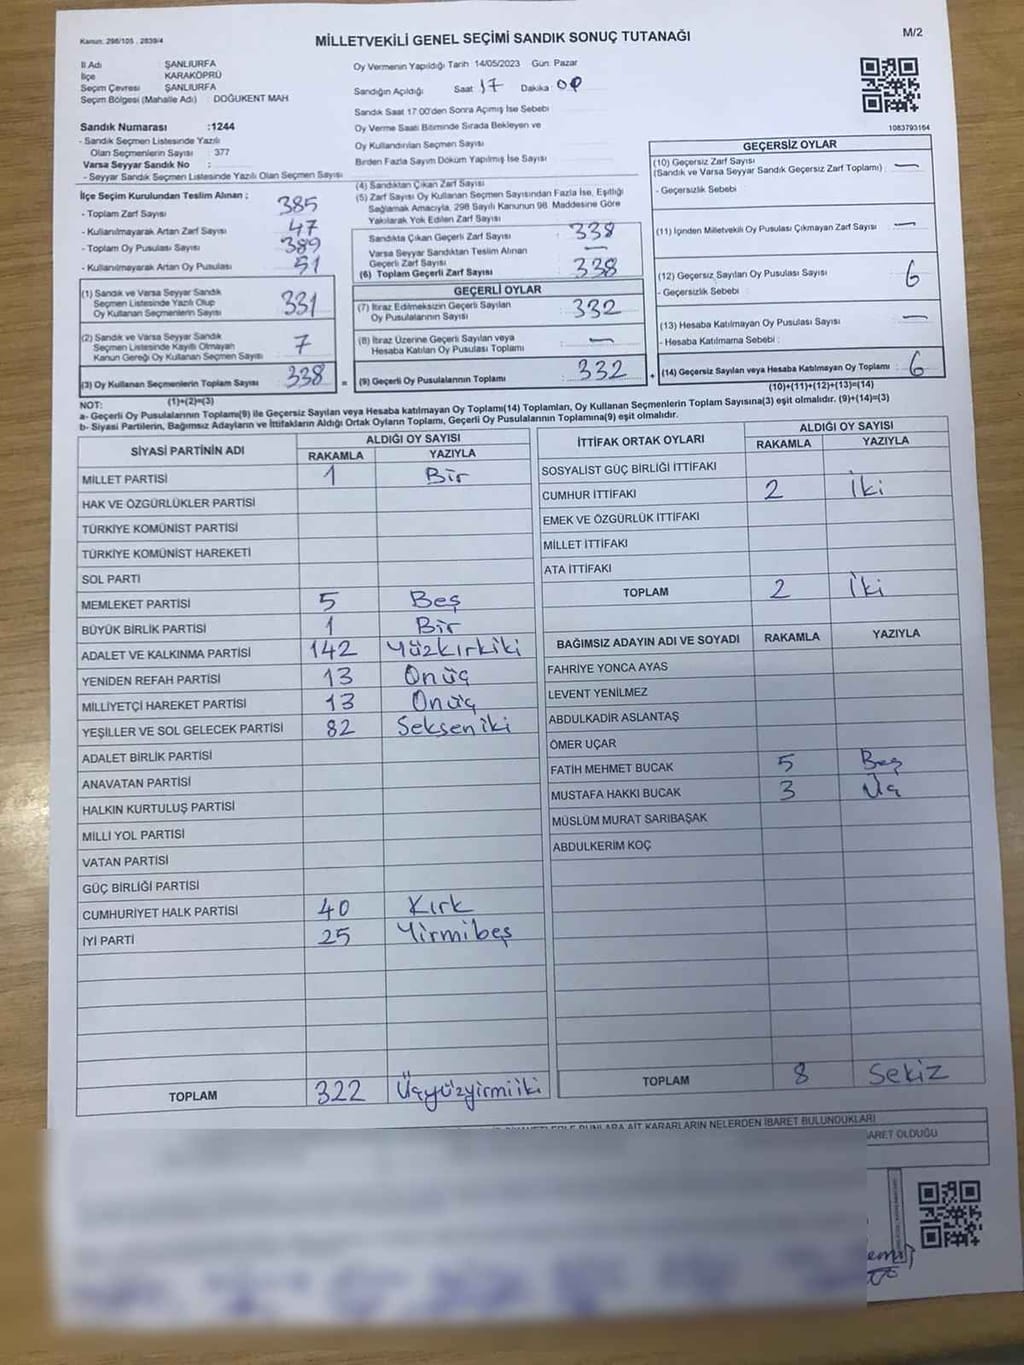 Kanun: 298/105 , 2839/4
MİLLETVEKİLİ GENEL SEÇİMİ SANDIK SONUÇ TUTANAĞI
M/2
İl Adı : ŞANLIURFA
İlçe : KARAKÖPRÜ
Seçim Çevresi : ŞANLIURFA
Seçim Bölgesi (Mahalle Adı) : DOĞUKENT MAH
Sandık Numarası :1244
- Sandık Seçmen Listesinde Yazılı
Olan Seçmenlerin Sayısı : 377
Varsa Seyyar Sandık No :
- Seyyar Sandık Seçmen Listesinde Yazılı Olan Seçmen Sayısı
Oy Vermenin Yapıldığı Tarih 14/05/2023 Gün: Pazar
Sandığın Açıldığı: Saat 17 Dakika 00
Sandık Saat 17:00'den Sonra Açılmış İse Sebebi
Oy Verme Saati Bitiminde Sırada Bekleyen ve
Oy Kullandırılan Seçmen Sayısı
Birden Fazla Sayım Döküm Yapılmış İse Sayısı
1083793164
İlçe Seçim Kurulundan Teslim Alınan ;
- Toplam Zarf Sayısı 385
- Kullanılmayarak Artan Zarf Sayısı 47
- Toplam Oy Pusulası Sayısı 389
- Kullanılmayarak Artan Oy Pusulası 51
(1) Sandık ve Varsa Seyyar Sandık
Seçmen Listesinde Yazılı Olup
Oy Kullanan Seçmenlerin Sayısı 331
(2) Sandık ve Varsa Seyyar Sandık
Seçmen Listesinde Kayıtlı Olmayan
Kanun Gereği Oy Kullanan Seçmen Sayısı 7
(3) Oy Kullanan Seçmenlerin Toplam Sayısı 338
(1)+(2)=(3)
(4) Sandıktan Çıkan Zarf Sayısı
(5) Zarf Sayısı Oy Kullanan Seçmen Sayısından Fazla İse, Eşitliği
Sağlamak Amacıyla, 298 Sayılı Kanunun 98. Maddesine Göre
Yakılarak Yok Edilen Zarf Sayısı
Sandıkta Çıkan Geçerli Zarf Sayısı 338
Varsa Seyyar Sandıktan Teslim Alınan
Geçerli Zarf Sayısı —
(6) Toplam Geçerli Zarf Sayısı 338
GEÇERLİ OYLAR
(7) İtiraz Edilmeksizin Geçerli Sayılan
Oy Pusulalarının Sayısı 332
(8) İtiraz Üzerine Geçerli Sayılan veya
Hesaba Katılan Oy Pusulası Toplamı —
= (9) Geçerli Oy Pusulalarının Toplamı 332
GEÇERSİZ OYLAR
(10) Geçersiz Zarf Sayısı
(Sandık ve Varsa Seyyar Sandık Geçersiz Zarf Toplamı) —
- Geçersizlik Sebebi
(11) İçinden Milletvekili Oy Pusulası Çıkmayan Zarf Sayısı —
(12) Geçersiz Sayılan Oy Pusulası Sayısı 6
- Geçersizlik Sebebi :
(13) Hesaba Katılmayan Oy Pusulası Sayısı —
- Hesaba Katılmama Sebebi :
+ (14) Geçersiz Sayılan veya Hesaba Katılmayan Oy Toplamı 6
(10)+(11)+(12)+(13)=(14)
NOT:
a- Geçerli Oy Pusulalarının Toplamı(9) ile Geçersiz Sayılan veya Hesaba katılmayan Oy Toplamı(14) Toplamları, Oy Kullanan Seçmenlerin Toplam Sayısına(3) eşit olmalıdır. (9)+(14)=(3)
b- Siyasi Partilerin, Bağımsız Adayların ve İttifakların Aldığı Ortak Oyların Toplamı, Geçerli Oy Pusulalarının Toplamına(9) eşit olmalıdır.
SİYASİ PARTİNİN ADI ALDIĞI OY SAYISI
RAKAMLA YAZIYLA
MİLLET PARTİSİ 1 Bir
HAK VE ÖZGÜRLÜKLER PARTİSİ
TÜRKİYE KOMÜNİST PARTİSİ
TÜRKİYE KOMÜNİST HAREKETİ
SOL PARTİ
MEMLEKET PARTİSİ 5 Beş
BÜYÜK BİRLİK PARTİSİ 1 Bir
ADALET VE KALKINMA PARTİSİ 142 Yüzkırkiki
YENİDEN REFAH PARTİSİ 13 Onüç
MİLLİYETÇİ HAREKET PARTİSİ 13 Onüç
YEŞİLLER VE SOL GELECEK PARTİSİ 82 Sekseniki
ADALET BİRLİK PARTİSİ
ANAVATAN PARTİSİ
HALKIN KURTULUŞ PARTİSİ
MİLLİ YOL PARTİSİ
VATAN PARTİSİ
GÜÇ BİRLİĞİ PARTİSİ
CUMHURİYET HALK PARTİSİ 40 Kırk
İYİ PARTİ 25 Yirmibeş
TOPLAM 322 Üçyüzyirmiiki
İTTİFAK ORTAK OYLARI ALDIĞI OY SAYISI
RAKAMLA YAZIYLA
SOSYALİST GÜÇ BİRLİĞİ İTTİFAKI
CUMHUR İTTİFAKI 2 İki
EMEK VE ÖZGÜRLÜK İTTİFAKI
MİLLET İTTİFAKI
ATA İTTİFAKI
TOPLAM 2 İki
BAĞIMSIZ ADAYIN ADI VE SOYADI RAKAMLA YAZIYLA
FAHRİYE YONCA AYAS
LEVENT YENİLMEZ
ABDULKADİR ASLANTAŞ
ÖMER UÇAR
FATİH MEHMET BUCAK 5 Beş
MUSTAFA HAKKI BUCAK 3 Üç
MÜSLÜM MURAT SARIBAŞAK
ABDULKERİM KOÇ
TOPLAM 8 Sekiz
BUNLARA AİT KARARLARIN NELERDEN İBARET BULUNDUKLARI
İBARET OLDUĞU